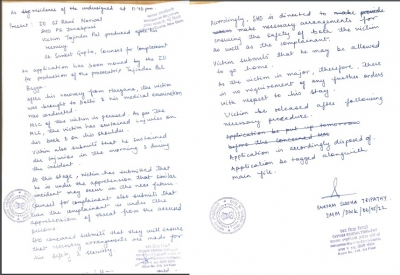 At residence of the undersigned at 11:45 pm.
Present: IO SI Ravi Narwal
SHO PS Janakpuri
Victim Tajinder Pal produced after his
recovery
Sh. Sanket Gupta, Counsel for Complainant
An application has been moved by the IO
for production of the prosecutrix Tajinder Pal
Bagga.
After his recovery from Haryana, the victim
was brought to Delhi & his medical examination
was conducted.
MLC of the victim is perused. As per the
MLC, the victim has sustained injuries on
his back & on his shoulder.
Victim also submits that he sustained
the injuries in the morning & during
the incident.
At this stage, victim has submitted that
he is under the apprehension that similar
incident may occur in the near future.
Counsel for complainant also submits that
even the complainant is under the
apprehension of threat from the accused
persons.
SHO concerned submits that they will ensure
that necessary arrangements are made for
his safety & security
Accordingly, SHO is directed to make provide
make necessary arrangements for
ensuring the safety of both the victim
as well as the complainant.
Victim submits that he may be allowed
to go home.
As the victim is major, therefore, there
is no requirement of any further orders
with respect to his stay.
Victim be released after following
necessary procedure.
Application be put up tomorrow
before the concerned
Application is accordingly disposed of.
Application be tagged alongwith
main file.